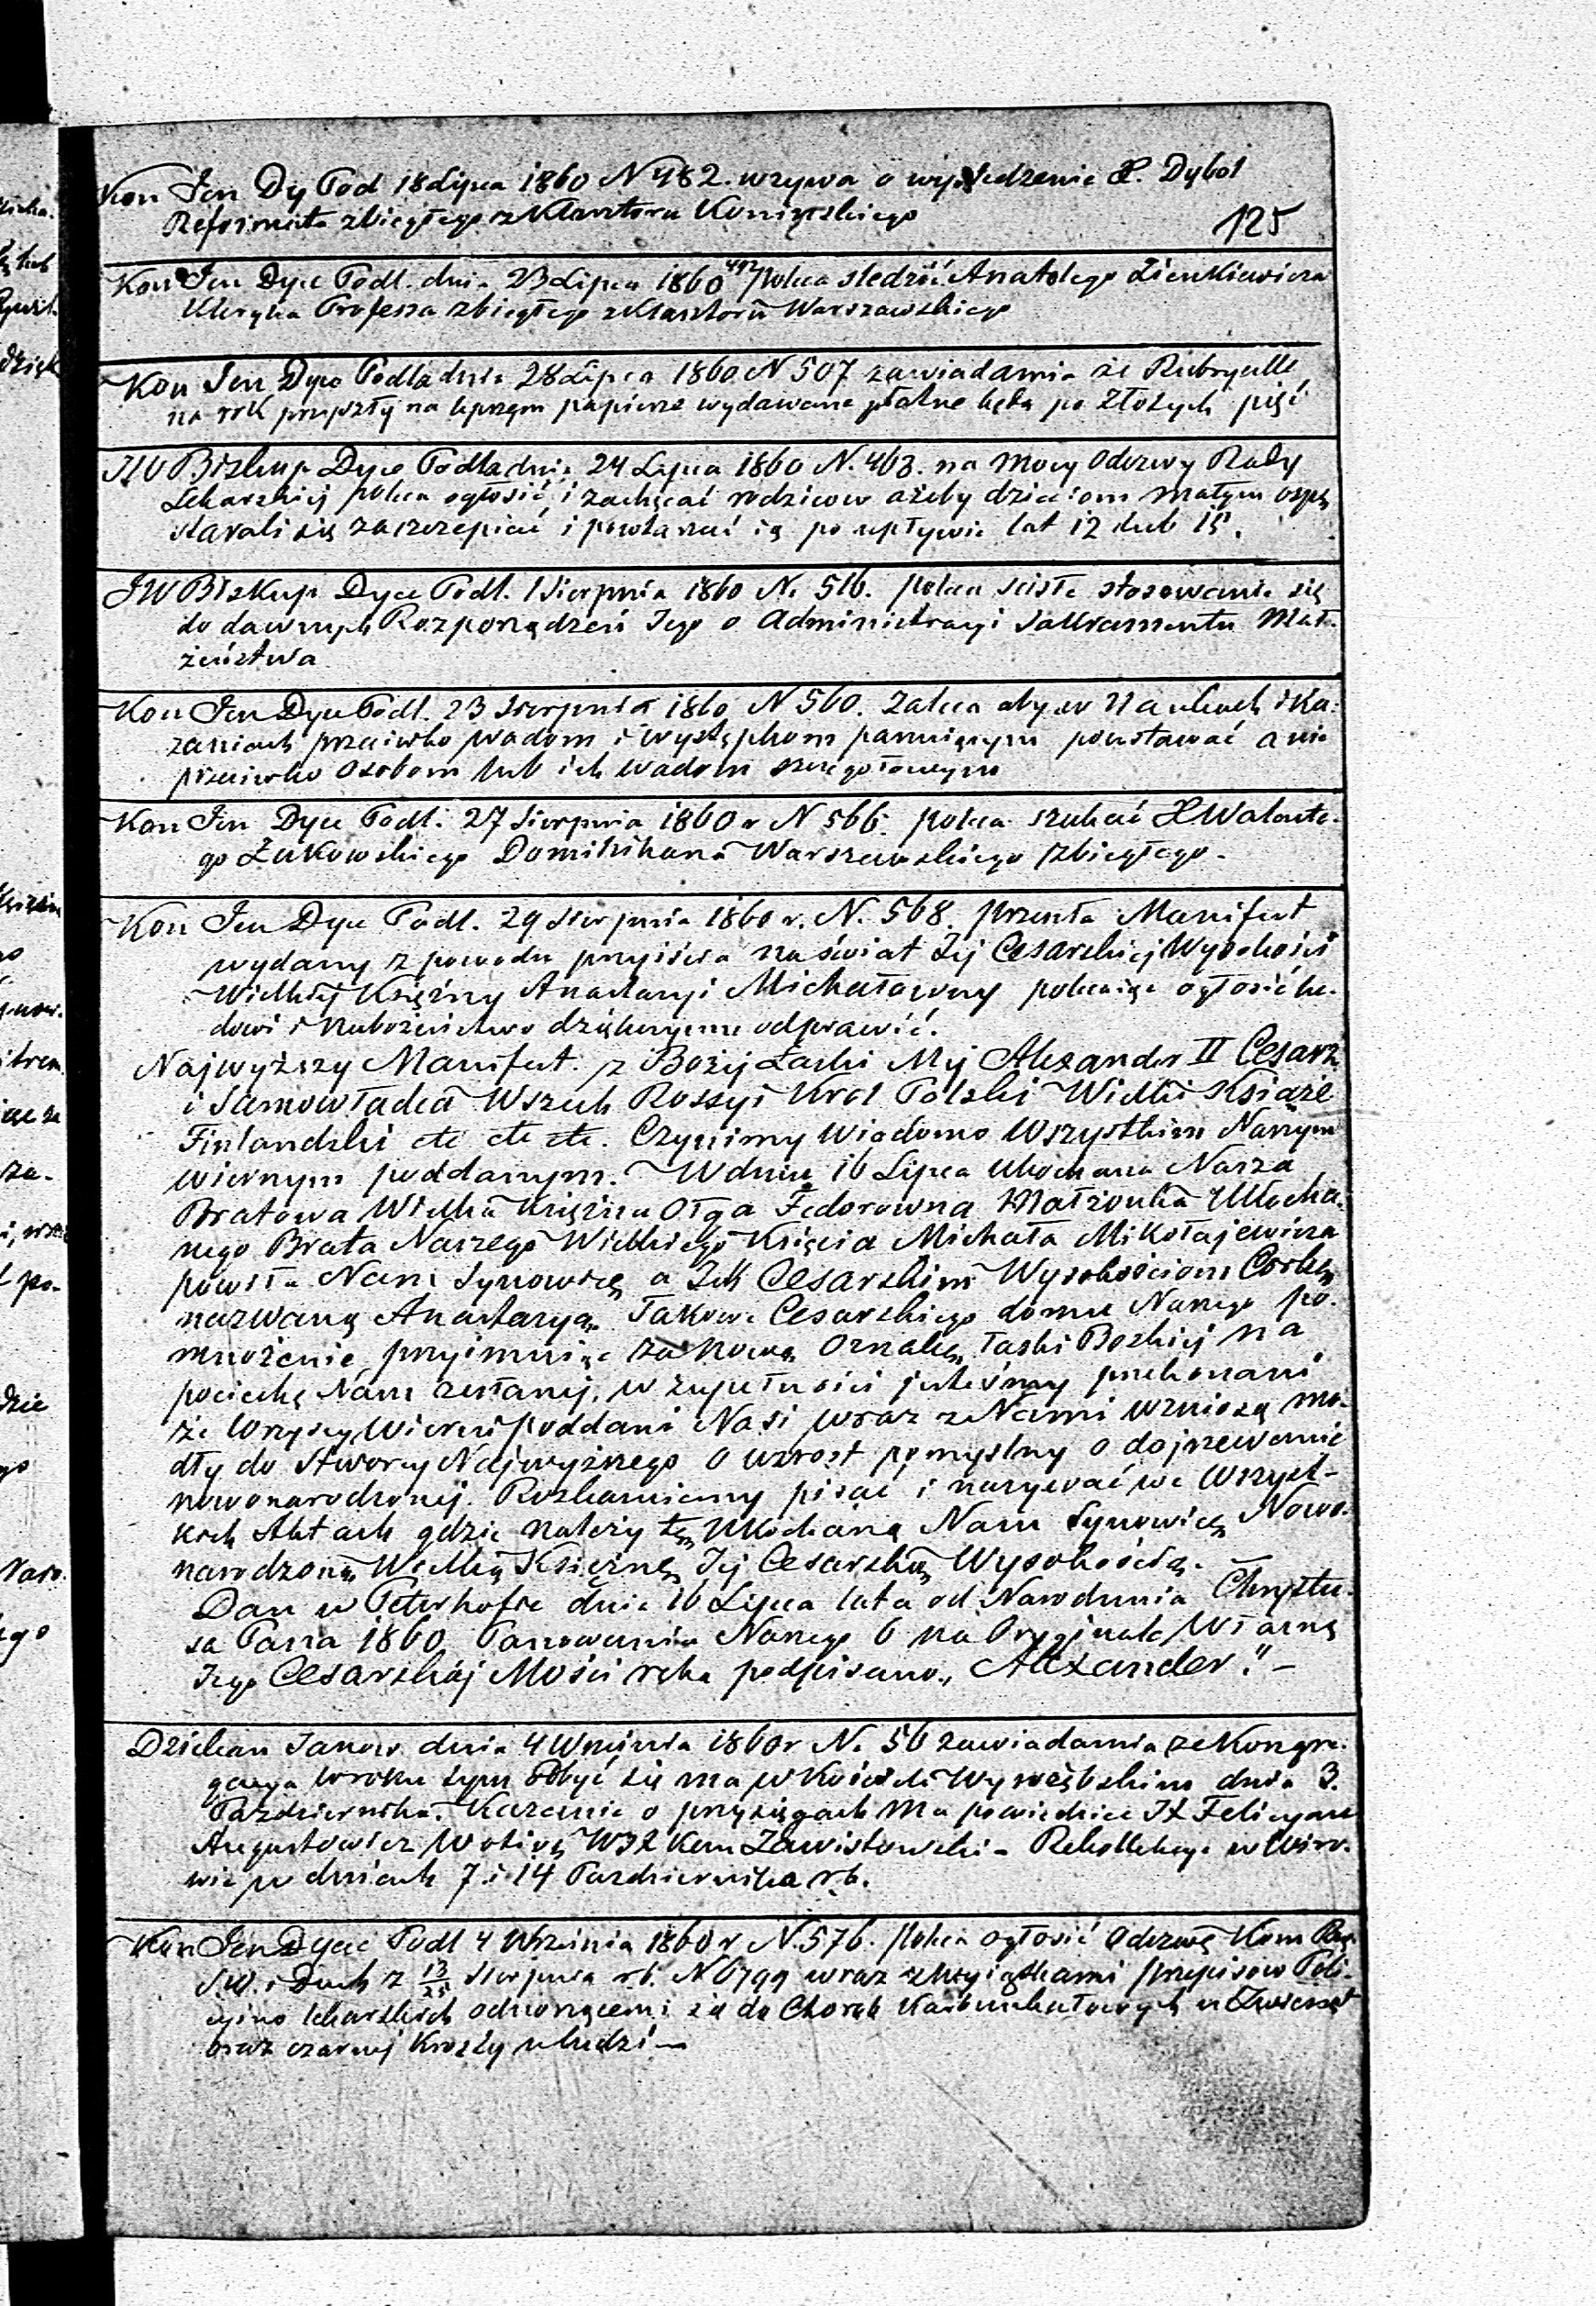 Kon Jen Dy Pod 18 Lipca 1860 N 482. wzywa o wyśledzenie X. Dybol
Reformata zbiegłego z Klasztoru Konińskiego
125
Kon Jen Dyec Podl. dnia 23 Lipca 1860 492 poleca śledzić Anatolego Zienkiewicza
Kleryka Professa zbiegłego z Klasztoru Warszawskiego
Kon Jen Dyec Podla dnia 28 Lipca 1860 N 507 zawiadamia że Rubrycelle
na rok przyszły na lepszym papierze wydawane płatne będą po Złotych pięć
JW Biskup Dyec Podla dnia 24 Lipca 1860 N. 463. na mocy Odezwy Rady
Lekarskiej poleca ogłosić i zachęcać rodziców ażeby dzieciom małym ospę
starali się zaszczepiać i powtarzać ią po upływie lat 12 lub 15.
JW Biskup Dyec Podl. 1 Sierpnia 1860 N. 516. poleca ścisłe stosowanie się
do dawnych Rozporządzeń Jego o Administracyi Sakramentu Mał-
żeństwa
Kon Jen Dyec Podl. 23 Sierpnia 1860 N 560. Zaleca aby w Naukach i Ka-
zaniach przeciwko wadom i występkom panuiącym powstawać a nie
przeciwko Osobom lub ich wadom szczegółowym
Kon Jen Dyec Podl. 27 Sierpnia 1860 r N 566. poleca szukać X Walente-
go Żukowskiego Dominikana Warszawskiego zbiegłego.
Kon Jen Dyec Podl. 29 Sierpnia 1860 r. N. 568. przesła Manifest
wydany z powodu przyiścia na świat Jej Cesarskiej Wysokości
Wielkiej Księżny Anastazyi Michałowny polecaiąc ogłosić lu-
dowi i Nabożeństwo dziękczynne odprawić.
Najwyższy Manifest. z Bożej Łaski My Alexander II Cesarz
i Samowładca Wszech Rossyi Krol Polski Wielki Książe
Finlandzki etc etc etc. Czynimy Wiadomo Wszystkim Naszym
wiernym poddanym. W dniu 16 Lipca Ukochana Nasza
Bratowa Wielka Księżna Olga Fedorowna Małżonka Ukocha-
nego Brata Naszego Wielkiego Księcia Michała Mikołajewicza
powiła Nam Synowicę a Ich Cesarskim Wysokościom Corkę
nazwaną Anastazyą. Takowe Cesarskiego domu Naszego po-
mnożenie przyimuiąc za nową Oznakę Łaski Boskiej na
pociechę Nam zesłanej, w zupełności jesteśmy przekonani
że Wszyscy Wierni poddani Nasi wraz z Nami wzniosą mo-
dły do Stworcy Najwyższego o wzrost pomyślny o dojrzewanie
nowonarodzonej. Rozkazuiemy pisać i nazywać we Wszyst-
kich Aktach gdzie należy tę Ukochaną Nam Synowicę Nowo-
narodzoną Wielką Księżnę Jej Cesarską Wysokością.
Dan w Peterhofie dnia 16 Lipca lata od Narodzenia Chrystu-
sa Pana 1860 Panowania Naszego 6 na Oryginale Własną
Jego Cesarskiej Mości ręką podpisano „Alexander." –
Dziekan Janow dnia 4 Września 1860 r N. 56 zawiadamia że Kongre-
gacya w roku tym odbyć się ma w Kościele Wyrozębskim dnia 3.
Października. Kazanie o przysięgach Ma powiedzieć JX Felicyan
Augustowicz Wotivę WJX Kan Zawistowski – Rekollekcye w Wiro-
wie w dniach 7 i 14 Października r.b.
Kon Jen Dyec Podl 4 Września 1860 r N. 576. Poleca ogłosić Odezwę Kom Rzą.
S.W. i Duch z 13/25 Sierpnia r.b. N 6799 wraz z wyiątkami przepisów Poli-
cyjno lekarskich odnoszącemi się do Chorob Karbunkułowych u Zwierząt
oraz czarnej Krosty u ludzi –